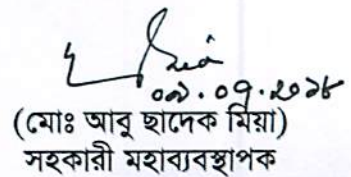 ০৯.০৭.২০১৮
(মোঃ আবু ছাদেক মিয়া)
সহকারী মহাব্যবস্থাপক